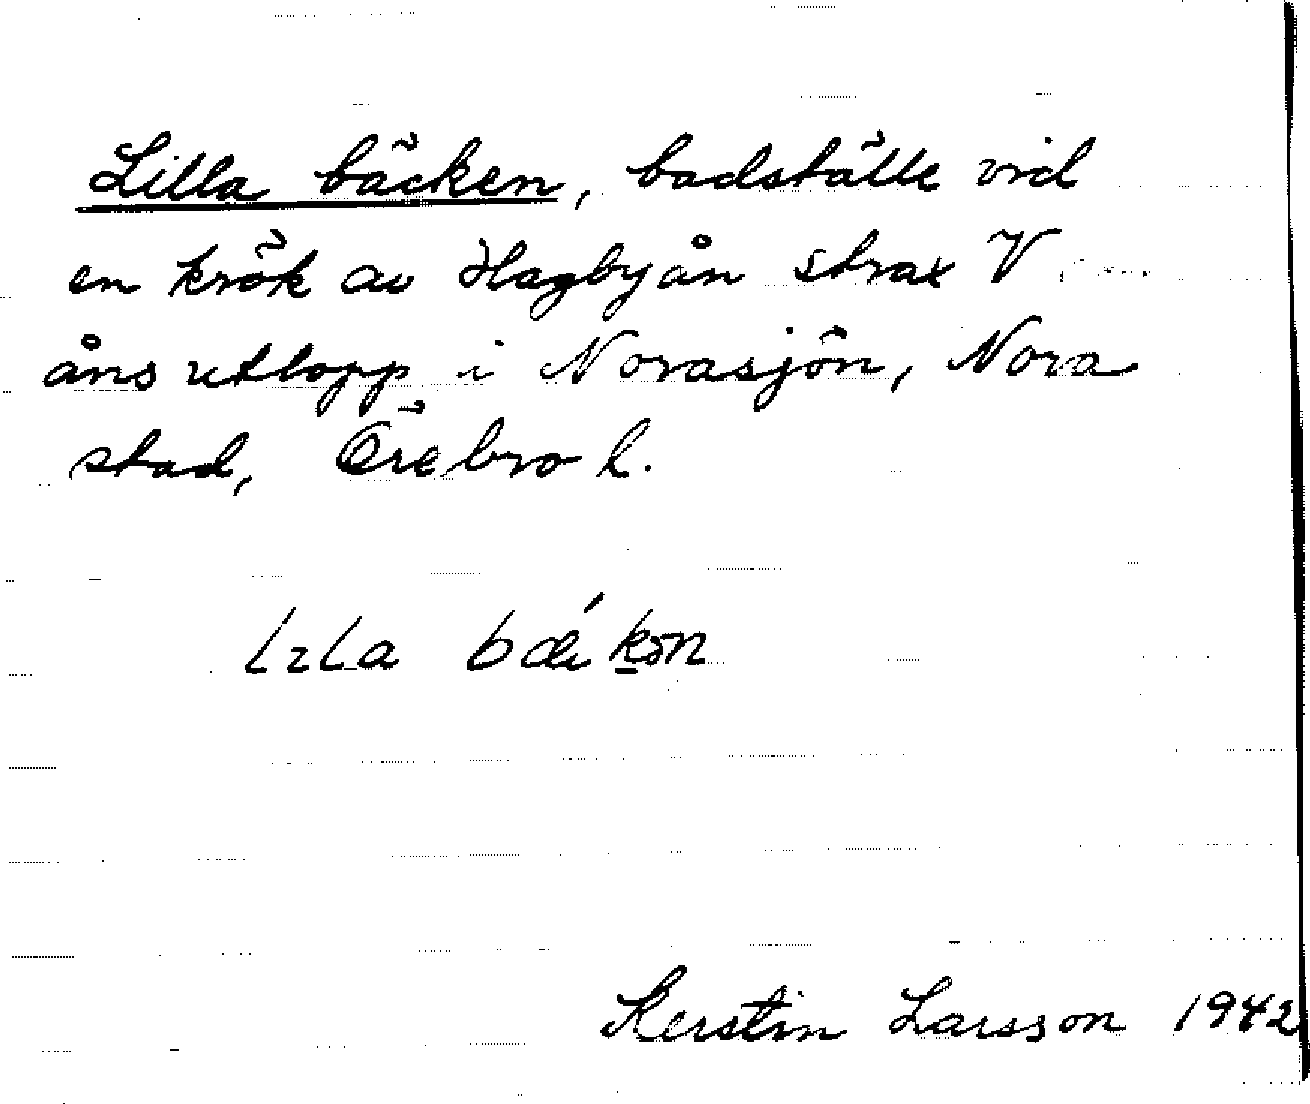 Lilla bäcken, badställe vid
en krök av Hagbyån strax V
åns utlopp i Norasjön, Nora
stad, Örebro l.
Kerstin Larsson 1942